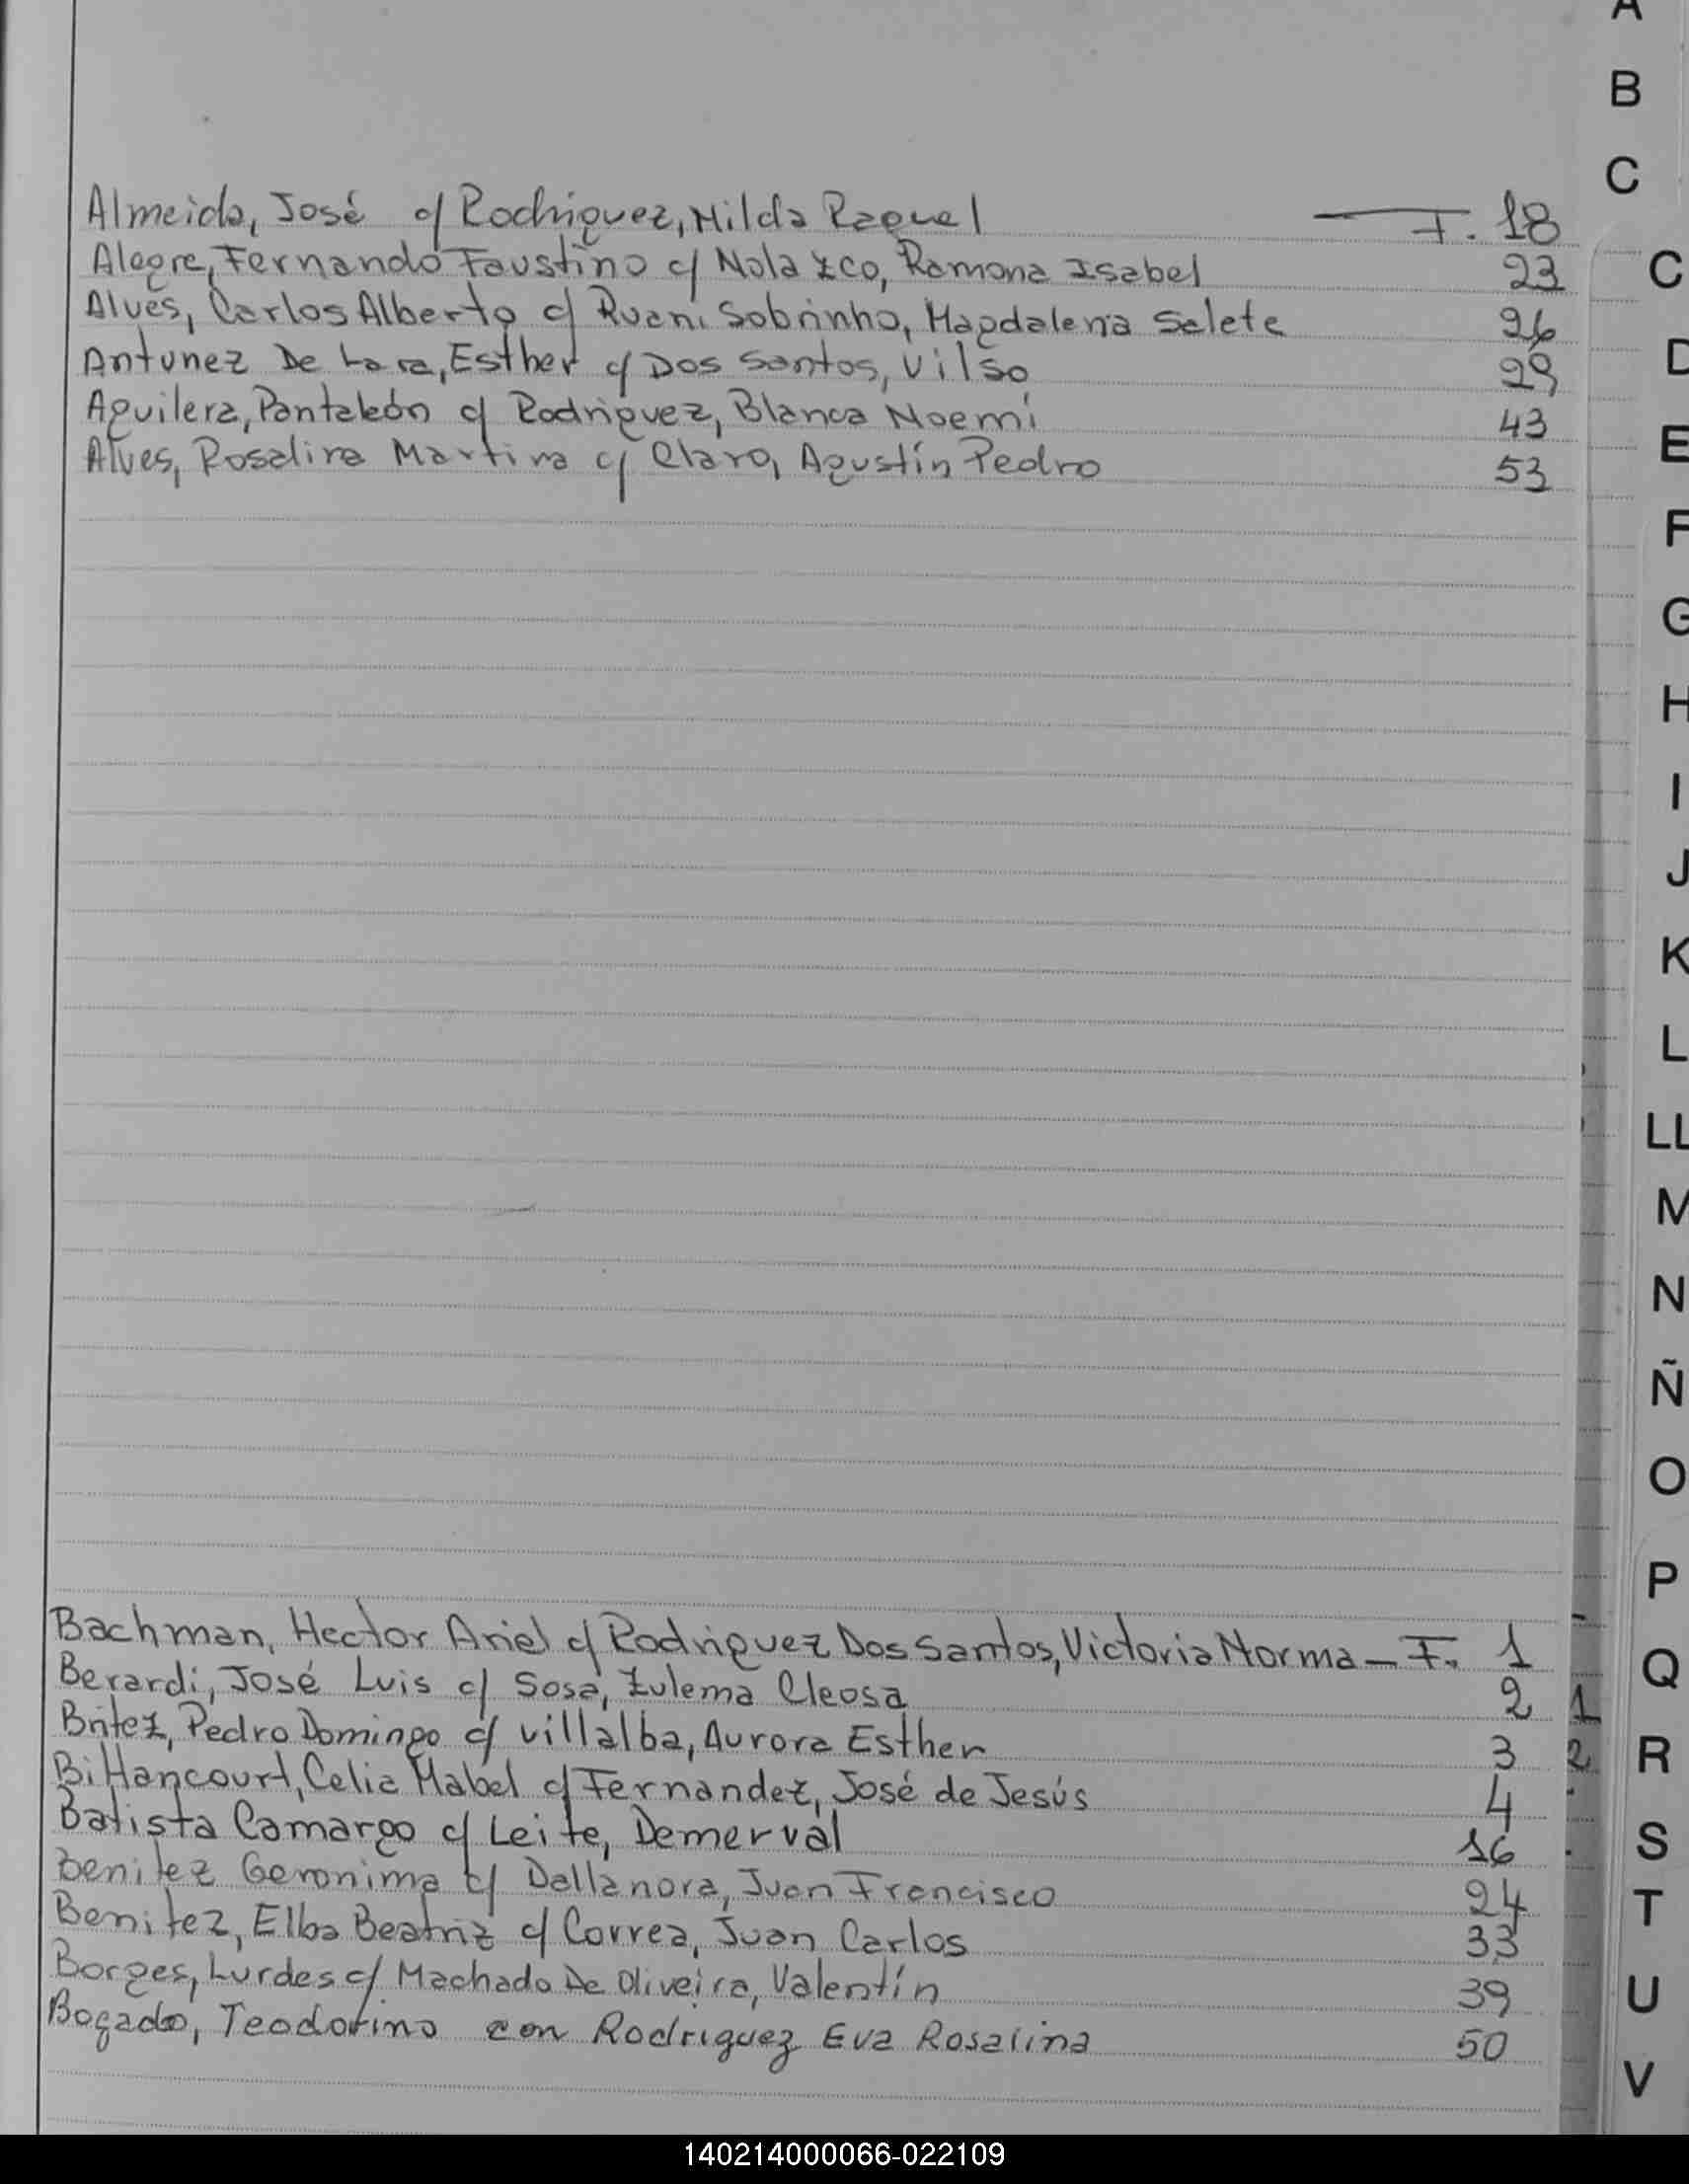 A
B
C
Almeida, José c/ Rodriguez, Hilda Raquel — F. 18
Alegre, Fernando Faustino c/ Nolazco, Ramona Isabel 23
Alves, Carlos Alberto c/ Ruani Sobrinho, Magdalena Salete 26
Antunez De Lara, Esther c/ Dos Santos, Vilso 29
Aguilera, Pantaleón c/ Rodriguez, Blanca Noemí 43
Alves, Rosalina Martina c/ Claro, Agustín Pedro 53
C
D
E
F
G
H
I
J
K
L
LL
M
N
Ñ
O
P
Q
R
S
T
U
V
Bachman, Hector Ariel c/ Rodriguez Dos Santos, Victoria Norma — F. 1
Berardi, José Luis c/ Sosa, Zulema Cleosa 2 1
Britez, Pedro Domingo c/ Villalba, Aurora Esther 3 2
Bittancourt, Celia Mabel c/ Fernandez, José de Jesús 4
Batista Camargo c/ Leite, Demerval 16
Benitez Geronima c/ Dallanora, Juan Francisco 24
Benitez, Elba Beatriz c/ Correa, Juan Carlos 33
Borges, Lurdes c/ Machado De Oliveira, Valentín 39
Bogado, Teodorino con Rodriguez Eva Rosalina 50
140214000066-022109